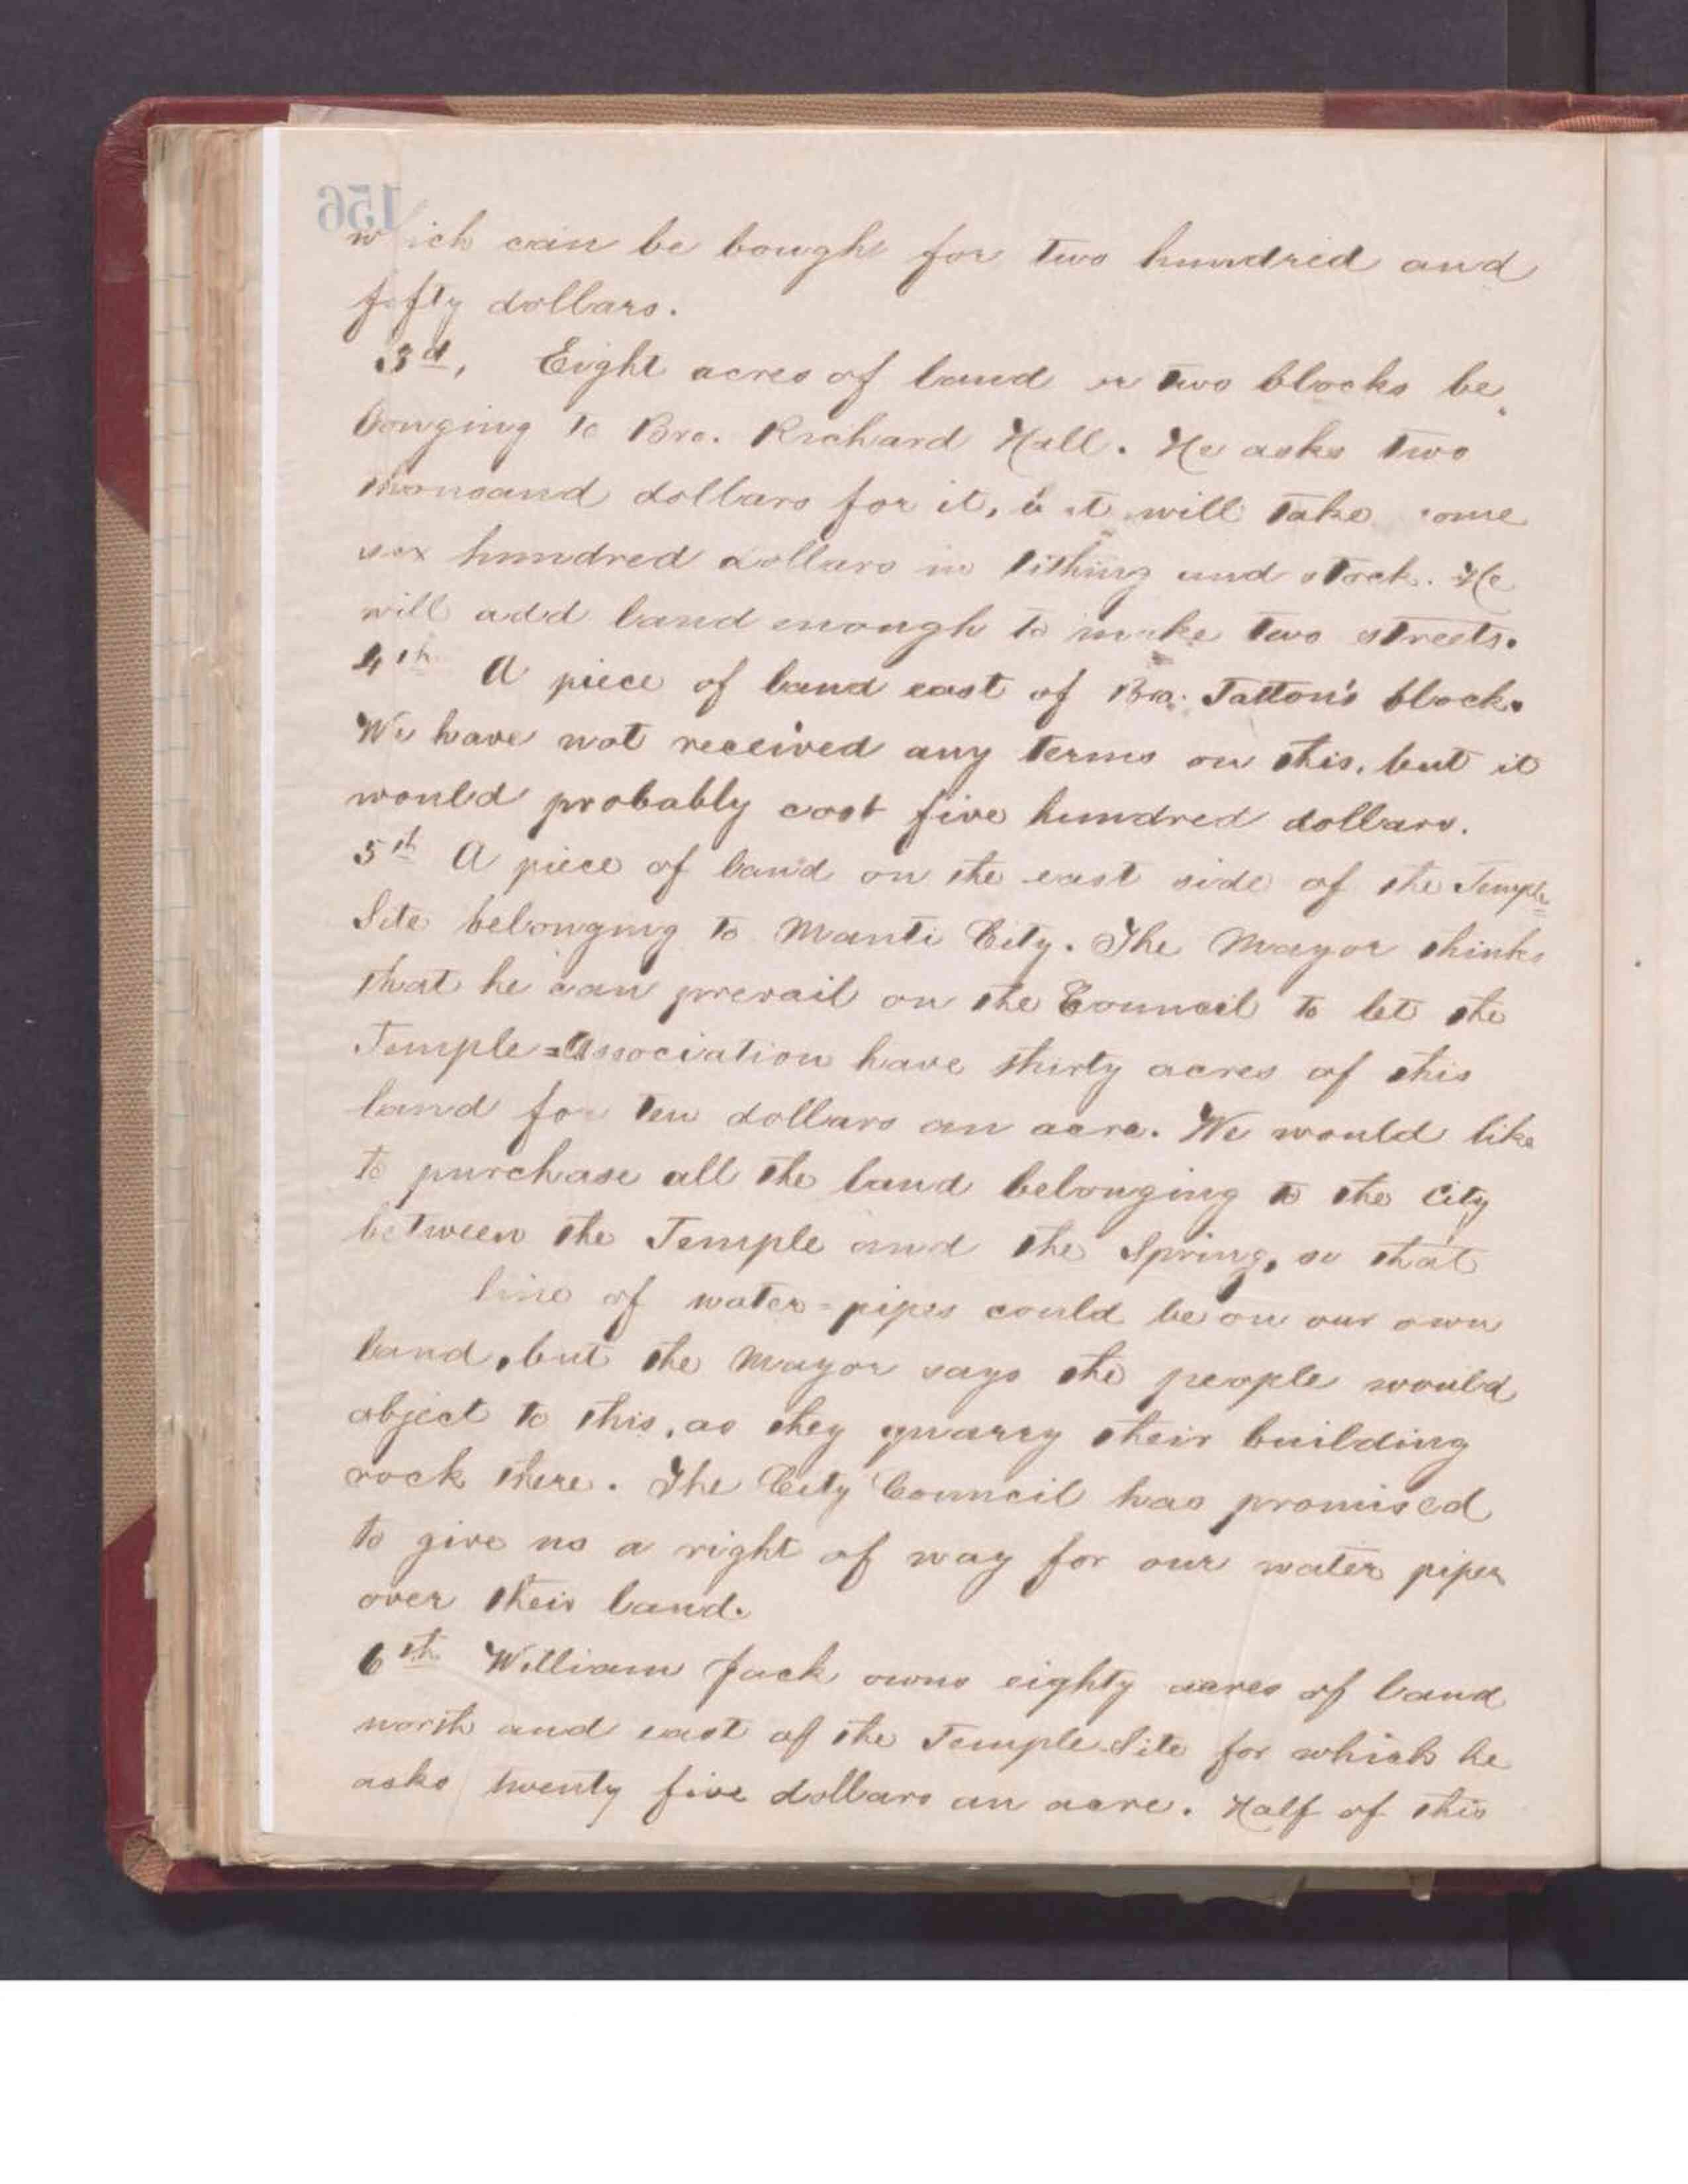 156
which can be bought for two hundred and
fifty dollars.
3d, Eight acres of land or two blocks be
longing to Bro. Richard Hall. He asks two
thousand dollars for it, but will take some
six hundred dollars in tithing and stock. He
will add land enough to make two streets.
4th A piece of land east of Bro. Tatton's block.
We have not received any terms on this, but it
would probably cost five hundred dollars.
5th A piece of land on the east side of the Temple=
Site belonging to Manti City. The Mayor thinks
that he can prevail on the Council to let the
Temple=Association have thirty acres of this
land for ten dollars an acre. We would like
to purchase all the land belonging to the City
between the Temple and the Spring, so that
line of water=pipes could be on our own
land, but the Mayor says the people would
object to this, as they quarry their building
rock there. The City Council has promised
to give us a right of way for our water pipes
over their land.
6th William Jack owns eighty acres of land
north and east of the Temple Site for which he
asks twenty five dollars an acre. Half of this